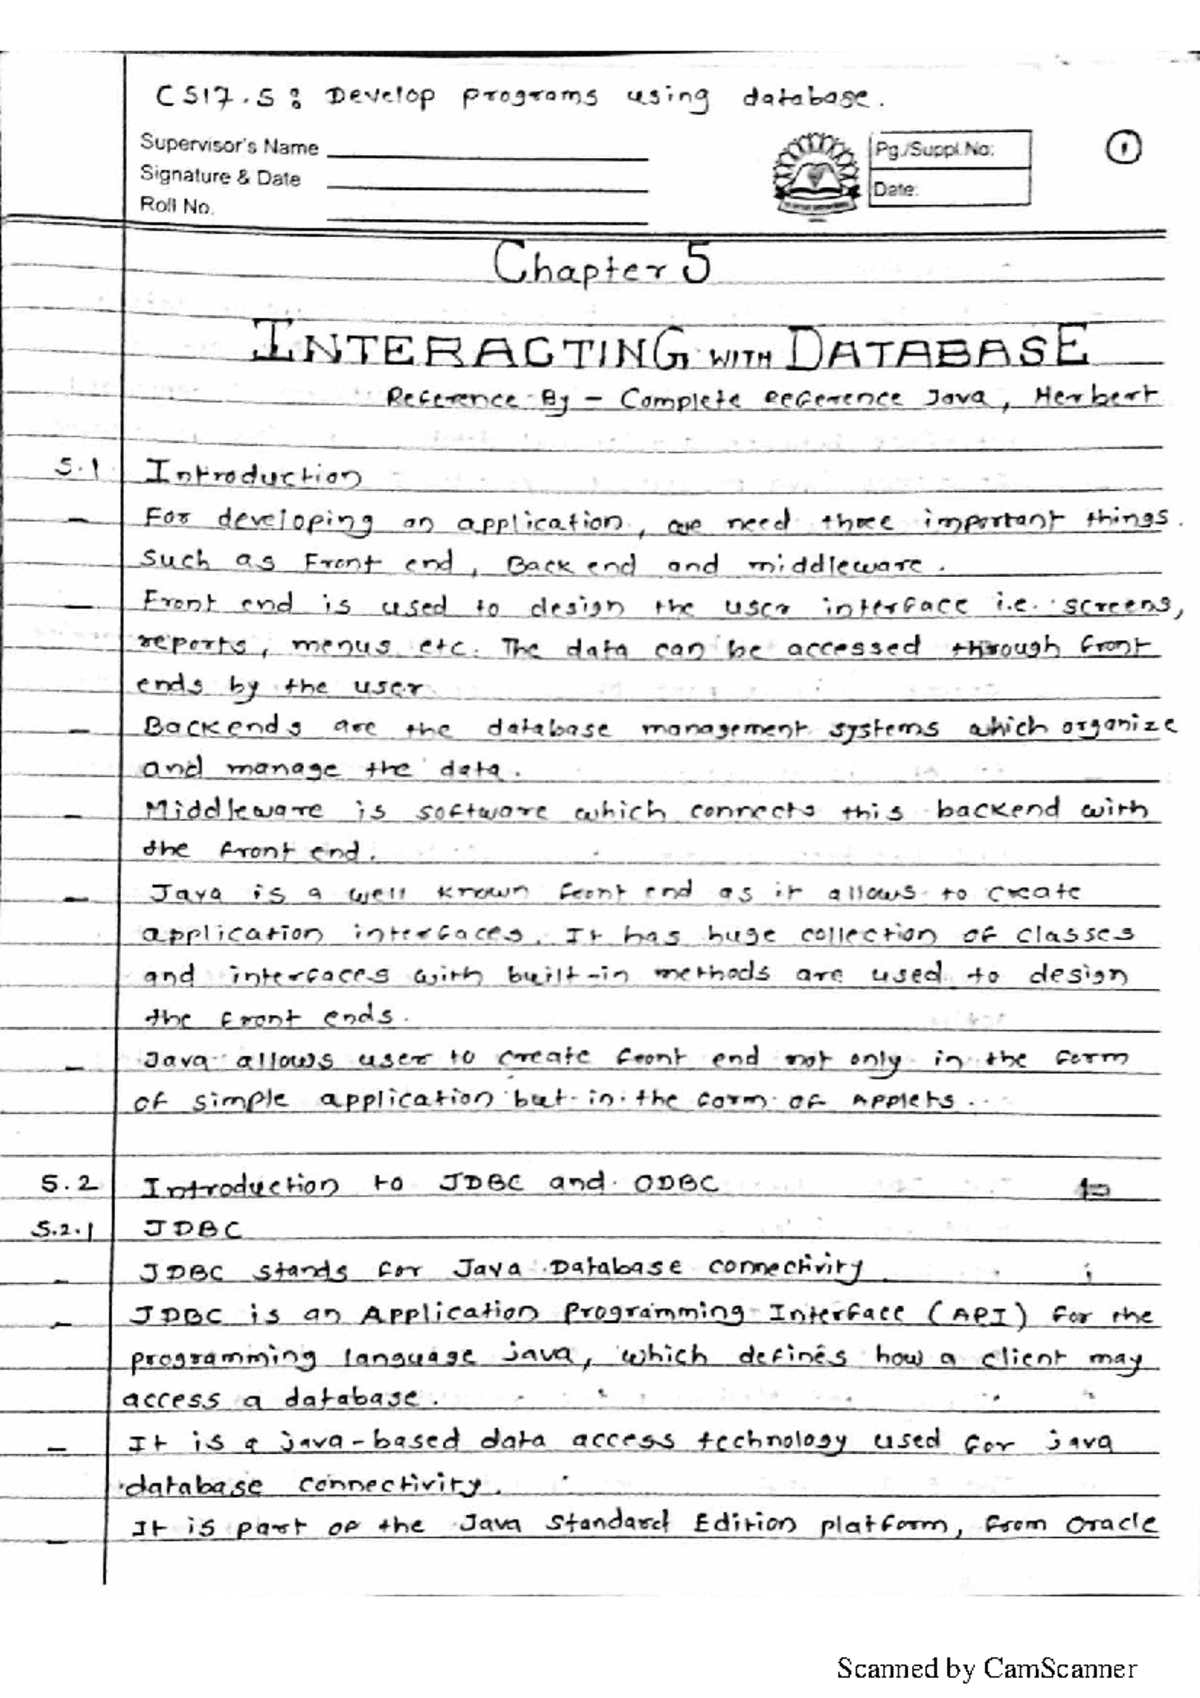 CS17.5 : Develop programs using database.
Supervisor's Name
Signature & Date
Roll No.
Pg./Suppl.No:
Date:
1
Chapter 5
INTERACTING WITH DATABASE
Reference By - Complete Reference Java, Herbert
5.1 Introduction
- For developing an application, we need three important things.
such as Front end, Back end and middleware.
- Front end is used to design the user interface i.e. screens,
reports, menus etc. The data can be accessed through front
ends by the user
- Backends are the database management systems which organize
and manage the data.
- Middleware is software which connects this backend with
the front end.
- Java is a well known front end as it allows to create
application interfaces. It has huge collection of classes
and interfaces with built-in methods are used to design
the front ends.
- Java allows user to create front end not only in the form
of simple application but in the form of Applets.
5.2 Introduction to JDBC and ODBC
5.2.1 JDBC
- JDBC stands for Java Database connectivity
- JDBC is an Application Programming Interface (API) for the
programming language java, which defines how a client may
access a database.
- It is a java-based data access technology used for java
database connectivity.
- It is part of the Java Standard Edition platform, from Oracle
Scanned by CamScanner